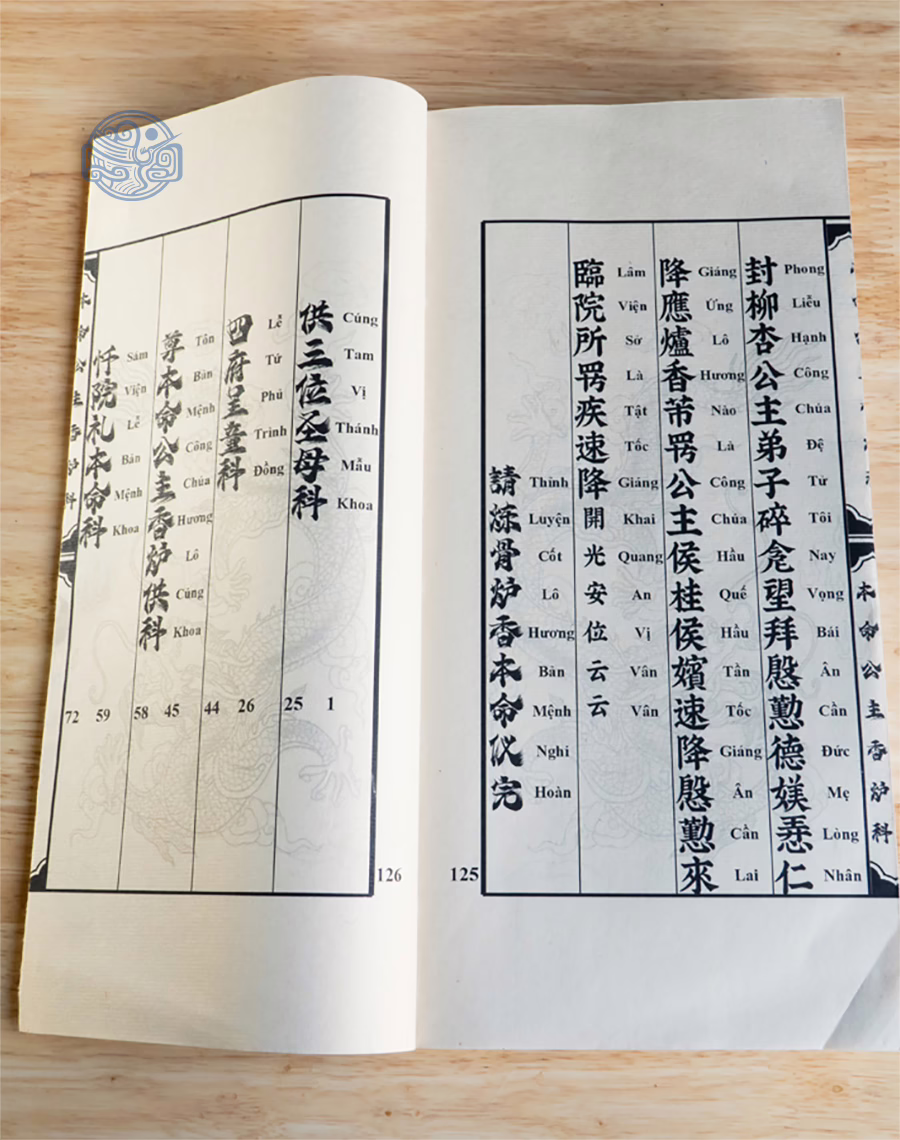 本命公主香炉科
封柳杏公主弟子碎𫢩望拜慇懃德媄𢚸仁
Phong Liễu Hạnh Công Chúa Đệ Tử Tôi Nay Vọng Bái Ân Cần Đức Mẹ Lòng Nhân
降應爐香芾罖公主侯桂侯嬪速降慇懃來
Giáng Ứng Lô Hương Nào Là Công Chúa Hầu Quế Hầu Tần Tốc Giáng Ân Cần Lai
臨院所罖疾速降開光安位云云
Lâm Viện Sở Là Tật Tốc Giáng Khai Quang An Vị Vân Vân
請炼骨炉香本命仪完
Thỉnh Luyện Cốt Lô Hương Bản Mệnh Nghi Hoàn
125
供三位圣母科
Cúng Tam Vị Thánh Mẫu Khoa
1
25
四府呈童科
Lễ Tứ Phủ Trình Đồng
26
44
尊本命公主香炉供科
Tôn Bản Mệnh Công Chúa Hương Lô Cúng Khoa
45
58
忏院礼本命科
Sám Viện Lễ Bản Mệnh Khoa
59
72
本命公主香炉科
126